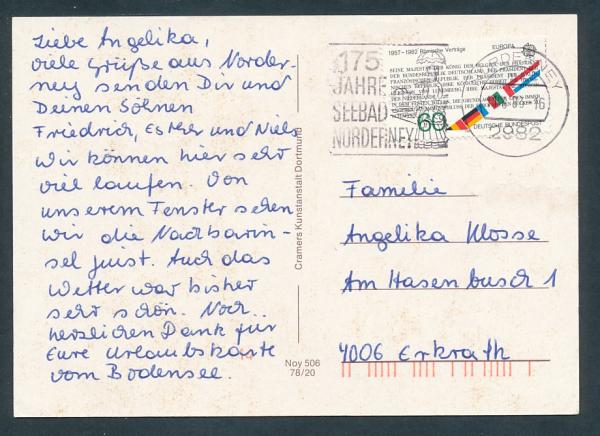 Liebe Angelika,
viele Grüße aus Norder-
ney senden Dir und
Deinen Söhnen
Friedrich, Esther und Niels
Wir können hier sehr
viel laufen. Von
unserem Fenster sehen
wir die Nachbarin-
sel Juist. Auch das
Wetter war bisher
sehr schön. Noch..
herzlichen Dank für
Eure Urlaubskarte
vom Bodensee.
Noy 506
78/20
Cramers Kunstanstalt Dortmund
175
JAHRE
SEEBAD
NORDERNEY
1957-1982 Römische Verträge
EUROPA
60
DEUTSCHE BUNDESPOST
NORDERNEY
2982
Familie
Angelika Klosse
Am Hasenbusch 1
4006 Erkrath